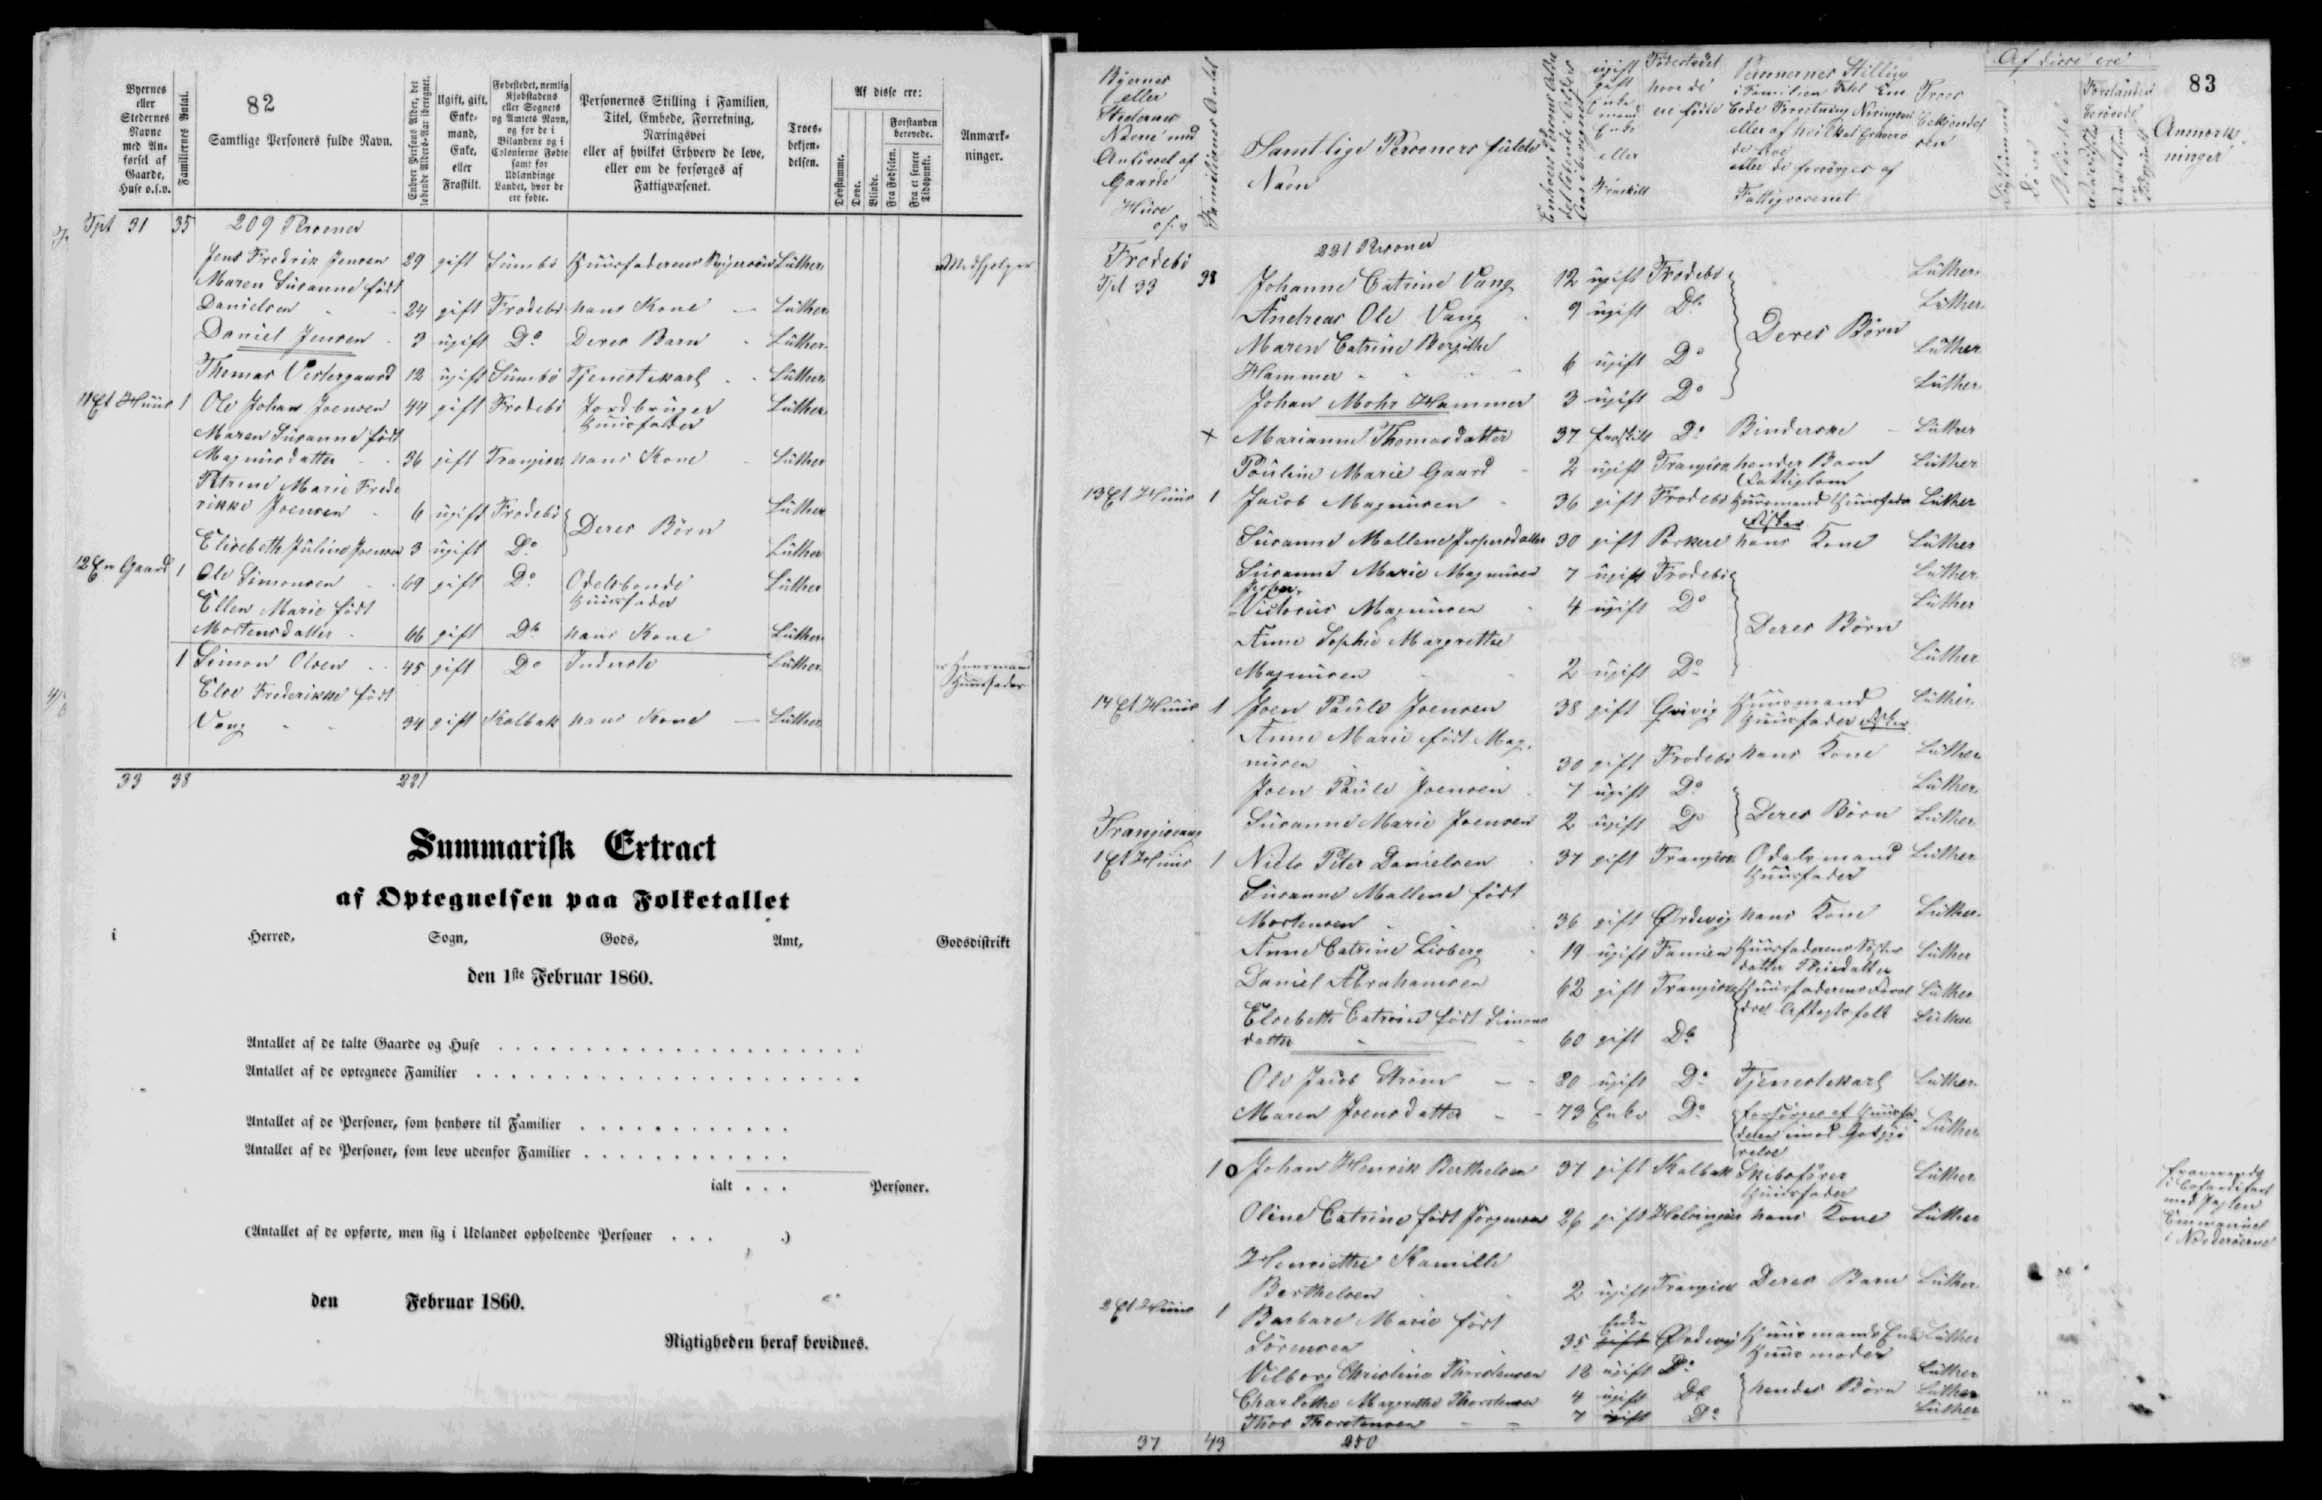 82
Byernes eller Stedernes Navne med Anførsel af Gaarde, Huse o.s.v.
Familiernes Antal.
Samtlige Personers fulde Navn.
Enhver Persons Alder, det løbende Alders-Aar iberegnet.
Ugift, gift, Enkemand, Enke, eller Fraskilt.
Fødestedet, nemlig Kjøbstadens eller Sognets og Amtets Navn, og for de i Bilandene og i Colonierne Fødte samt for Udlandinge Landet, hvor de ere fødte.
Personernes Stilling i Familien, Titel, Embede, Forretning, Næringsvei eller af hvilket Erhverv de leve, eller om de forsørges af Fattigvæsenet.
Troesbekjendelsen.
Af disse ere:
Døvstumme.
Døve.
Blinde.
Forstanden berøvede.
Fra Fødselen.
Fra et senere Tidspunkt.
Anmærkninger.
Tpt 31 35 209 Personer
Jens Fredrik Jensen 29 gift Sumbø Huusfaderens Luther
Maren Susanne født
Danielsen 24 gift Frodebø hans Kone Luther
Daniel Jensen 3 ugift Do Deres Barn Luther
Thomas Vestergaard 12 ugift Sumbø Tjenestekarl Luther
11 Et Huus 1 Ole Johan Joensen 44 gift Frodebø Jordbruger Luther
Huusfader
Maren Susanne født
Magnusdatter 36 gift hans Kone Luther
Marie Frede
rikke Joensen 6 ugift Frodebø Deres Børn Luther
Elisebeth Juline Joensen 3 ugift Do Luther
12 En Gaard 1 Ole Simonsen 69 gift Do Odelsbonde Luther
Huusfader
Ellen Marie født
Mortensdatter 66 gift Do hans Kone Luther
1 Simon Olsen 45 gift Do Inderste Luther
Huusmand
Huusfader
Else Frederikke født
Vang 34 gift Kolbak hans Kone Luther
33 38 221
Summarisk Extract
af Optegnelsen paa Folketallet
i Herred, Sogn, Gods, Amt, Godsdistrikt
den 1ste Februar 1860.
Antallet af de talte Gaarde og Huse
Antallet af de optegnede Familier
Antallet af de Personer, som henhøre til Familier
Antallet af de Personer, som leve udenfor Familier
ialt . . . Personer.
(Antallet af de opførte, men sig i Udlandet opholdende Personer . . . .)
den Februar 1860.
Rigtigheden heraf bevidnes.
83
Byernes
eller
Stedernes
Navne med
Anførsel af
Gaarde
Huse
o.s.v
Familiernes Antal
Samtlige Personers fulde
Navn
ugift
gift
Enke
mand
Enke
eller
Fraskilt
Fødestedet
hvor de
ere fødte
Personernes Stilling
i Familien Titel Em
bede Forretning Næringsvei
eller af hvilket Erhverv
de leve
eller de forsørges af
Fattigvæsenet
Troes
bekjendel
sen
Af disse ere
Døve
Blinde
Anmærk
ninger
Frodebø 221 Personer
Tpt 33 38 Johanne Catrine Vang 12 ugift Frodebø Luther
Andreas Ole Vang 9 ugift Do Luther
Deres Børn
Maren Catrine Bergithe
Hammer 6 ugift Do Luther
Johan Mohr Hammer 3 ugift Do Luther
+ Marianne Thomasdatter 37 fraskilt Do Binderske Luther
Pouline Marie Gaard 2 ugift hendes Barn Luther
Fattiglem
13 Et Huus 1 Jacob Magnusen 36 gift Frodebø Huusmand Huusfader Luther
Fisker
Susanne Mallene Jespersdatter 30 gift Porkere hans Kone Luther
Susanne Marie Magnusen 7 ugift Frodebø Luther
Jesper
Victorius Magnusen 4 ugift Do Luther
Deres Børn
Anne Sophie Margrethe
Magnusen 2 ugift Do Luther
14 Et Huus 1 Joen Paule Joensen 38 gift Qvivig Huusmand Luther
Huusfader Fisker
Anne Marie født Mag
nusen 30 gift Frodebø hans Kone Luther
Joen Paule Joensen 7 ugift Do Luther
Susanne Marie Joensen 2 ugift Do Deres Børn Luther
Trangisvaag
1 Et Huus 1 Niels Peter Danielsen 37 gift Odelsmand Luther
Huusfader
Susanne Mallene født
Mortensen 36 gift Ørdevig hans Kone Luther
Anne Catrine Lisberg 19 ugift Famien Huusfaderens Søster Luther
datter Pleiedatter
Daniel Abrahamsen 62 gift Huusfaderens Foræl Luther
dre Aftægtsfolk
Elsebeth Catrine født Simons
datter 60 gift Do Luther
Ole Jacob Strøm 30 ugift Do Tjenestekarl Luther
Maren Joensdatter 73 Enke Do forsørges af Huusfa Luther
deren imod Godtgjø
relse
1 Johan Henrik Berthelsen 37 gift Kolbak Skibsfører Luther
Huusfader
fraværende
med Jagten
Emmanuel
i Norderøerne
Oline Catrine født Jørgensen 26 gift Helsingør hans Kone Luther
Henriette Kamille
Berthelsen 2 ugift Deres Barn Luther
2 Et Huus 1 Barbara Marie født
Sørensen 35 Enke Ørdevig Huusmands Enke Luther
Huusmoder
Vilborg Christine Thorstensen 12 ugift Do Luther
Charlotte Margrethe Thorstensen 4 ugift Do hendes Børn Luther
Thor Thorstensen 7 ugift Do Luther
37 43 250